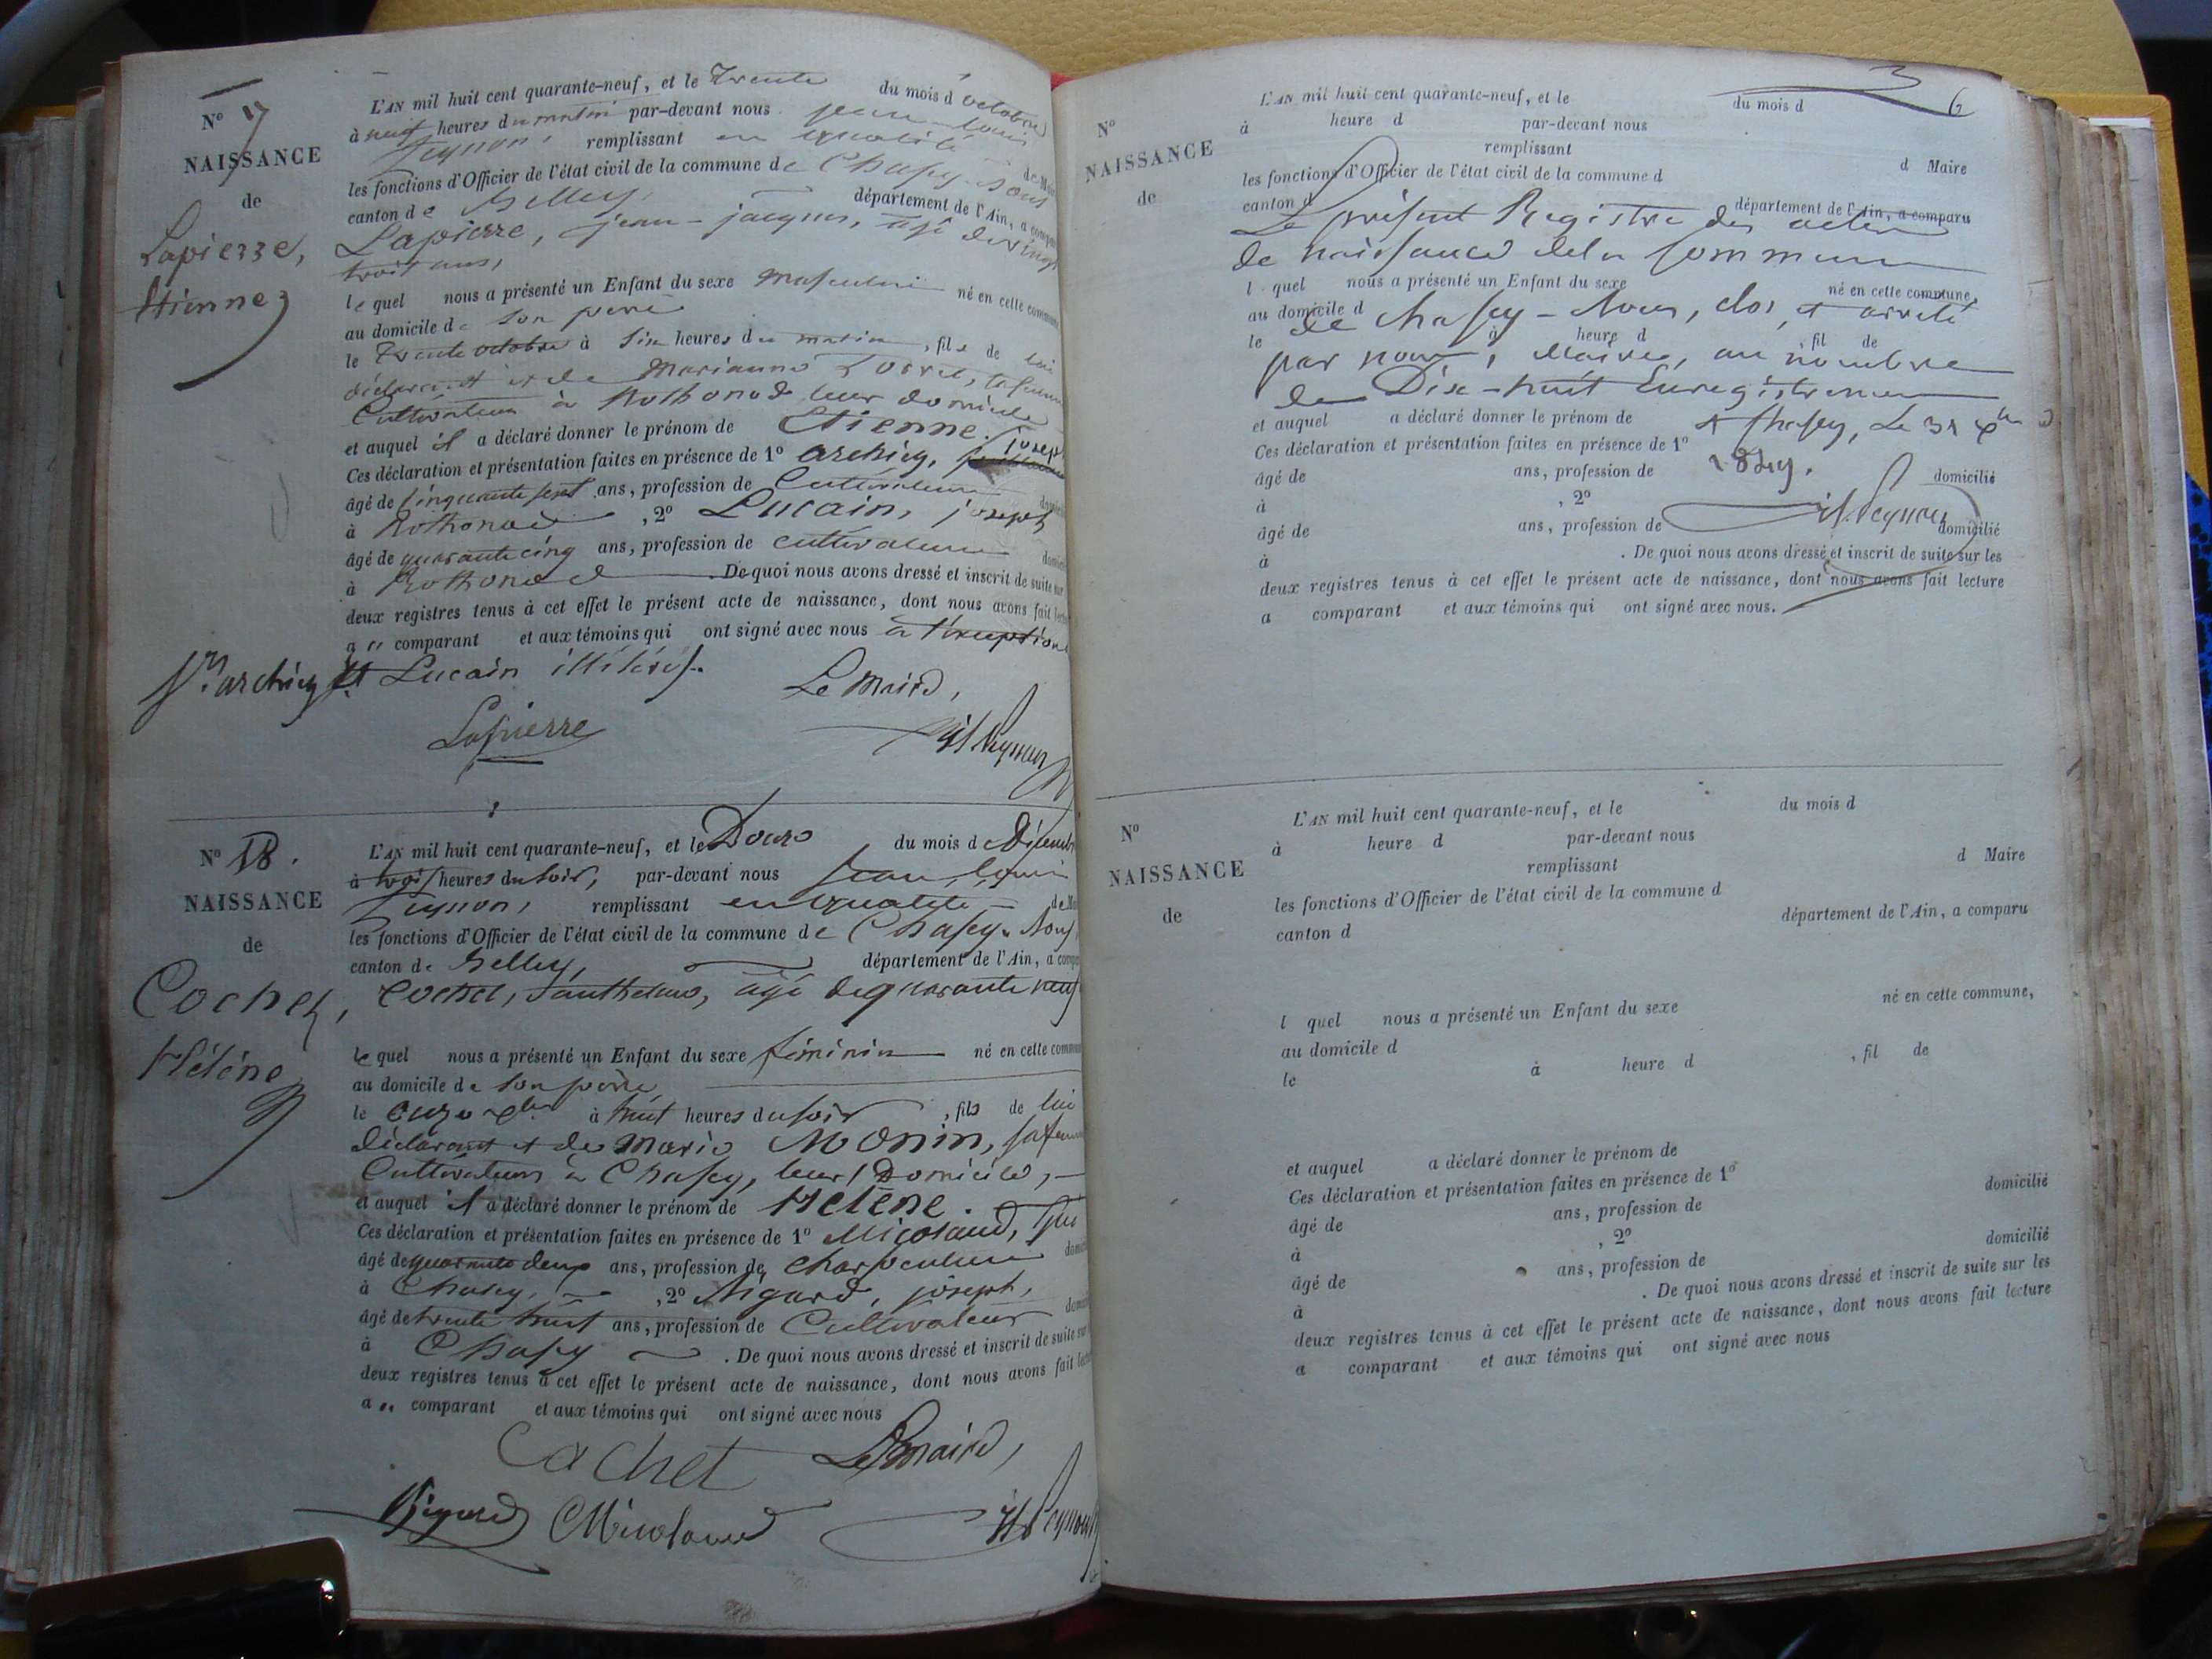 N° 17
NAISSANCE
de
Lapierre,
Etienne
L'AN mil huit cent quarante-neuf, et le Trente du mois d octobre
à neuf heures du matin par-devant nous jean-louis
remplissant en qualité de
les fonctions d'Officier de l'état civil de la commune de Chasey-Sous
canton de Belley, département de l'Ain, a comparu
Lapierre, jean-jacques, agé de vingt
trois ans,
lequel nous a présenté un Enfant du sexe masculin né en cette commune
au domicile de son père
le Trente octobre à Six heures du matin, fils de lui
déclarant et de Marianne sa femme
Cultivateurs à Rothonod leur domicile
et auquel il a déclaré donner le prénom de Etienne.
Ces déclaration et présentation faites en présence de 1° archiey, joseph
âgé de Cinquante sept ans, profession de Cultivateur
à Rothonod , 2° Lucain, joseph
âgé de quarante cinq ans, profession de cultivateur
à Rothonod . De quoi nous avons dressé et inscrit de suite sur
deux registres tenus à cet effet le présent acte de naissance, dont nous avons fait lecture
a comparant et aux témoins qui ont signé avec nous à l'exception
et Lucain
Le Maire,
Lapierre
N° 18.
NAISSANCE
de
Cochet,
Hélène
L'AN mil huit cent quarante-neuf, et le Douze du mois de Décembre
à trois heures du soir, par-devant nous Jean louis
remplissant en qualité de
les fonctions d'Officier de l'état civil de la commune de Chasey-Sous
canton de Belley, département de l'Ain, a comparu
Cochet, Anthelme, agé de quarante neuf
lequel nous a présenté un Enfant du sexe féminin né en cette commune
au domicile de son père
le onze Xbre à huit heures du soir, fils de lui
déclarant et de Marie Monin, sa femme
Cultivateurs à Chasey, leur Domicile,
et auquel il a déclaré donner le prénom de Hélène.
Ces déclaration et présentation faites en présence de 1° Micolaud,
âgé de quarante deux ans, profession de
à Chasey, , 2° joseph,
âgé de trente huit ans, profession de Cultivateur
à Chasey . De quoi nous avons dressé et inscrit de suite sur
deux registres tenus à cet effet le présent acte de naissance, dont nous avons fait lecture
a comparant et aux témoins qui ont signé avec nous
Cachet Le maire,
Micolaud
6
N°
NAISSANCE
de
L'AN mil huit cent quarante-neuf, et le du mois d
à heure d par-devant nous
remplissant d Maire
les fonctions d'Officier de l'état civil de la commune d
canton d département de l'Ain, a comparu
Le présent Registre des actes
de naissance de la Commune
l quel nous a présenté un Enfant du sexe né en cette commune,
au domicile d
de Chasey-Sous, clos et arrêté
le à heure d fil de
par nous, Maire, au nombre
de Dix-huit Enregistrement
et auquel a déclaré donner le prénom de
A Chasey, Le 31 Xbre
Ces déclaration et présentation faites en présence de 1°
1849.
âgé de ans, profession de domicilié
à , 2°
âgé de ans, profession de domicilié
à . De quoi nous avons dressé et inscrit de suite sur les
deux registres tenus à cet effet le présent acte de naissance, dont nous avons fait lecture
a comparant et aux témoins qui ont signé avec nous.
N°
NAISSANCE
de
L'AN mil huit cent quarante-neuf, et le du mois d
à heure d par-devant nous
remplissant d Maire
les fonctions d'Officier de l'état civil de la commune d
canton d département de l'Ain, a comparu
l quel nous a présenté un Enfant du sexe né en cette commune,
au domicile d
le à heure d , fil de
et auquel a déclaré donner le prénom de
Ces déclaration et présentation faites en présence de 1°
âgé de ans, profession de domicilié
à , 2°
âgé de ans, profession de domicilié
à . De quoi nous avons dressé et inscrit de suite sur les
deux registres tenus à cet effet le présent acte de naissance, dont nous avons fait lecture
a comparant et aux témoins qui ont signé avec nous